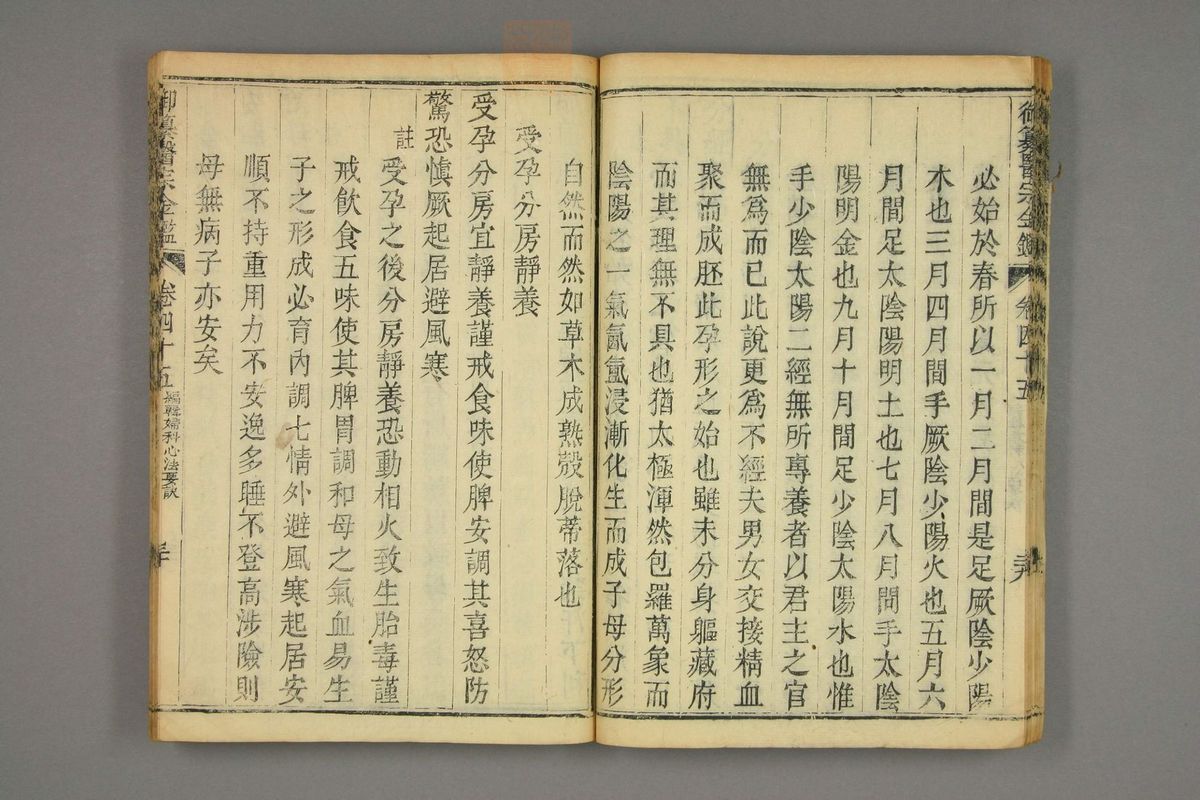 御纂醫宗金鑑 卷四十五
必始於春所以一月二月間是足厥陰少陽
木也三月四月間手厥陰少陽火也五月六
月間足太陰陽明土也七月八月間手太陰
陽明金也九月十月間足少陰太陽水也惟
手少陰太陽二經無所專養者以君主之官
無爲而已此說更爲不經夫男女交接精血
聚而成胚此孕形之始也雖未分身軀藏府
而其理無不具也猶太極渾然包羅萬象而
陰陽之一氣氤氳浸漸化生而成子母分形
自然而然如草木成熟殼脫蒂落也
受孕分房靜養
受孕分房宜靜養謹戒食味使脾安調其喜怒防
驚恐慎厥起居避風寒
註 受孕之後分房靜養恐動相火致生胎毒謹
戒飲食五味使其脾胃調和母之氣血易生
子之形成必育內調七情外避風寒起居安
順不持重用力不安逸多睡不登高涉險則
母無病子亦安矣
御纂醫宗金鑑 卷四十五 編輯婦科心法要訣